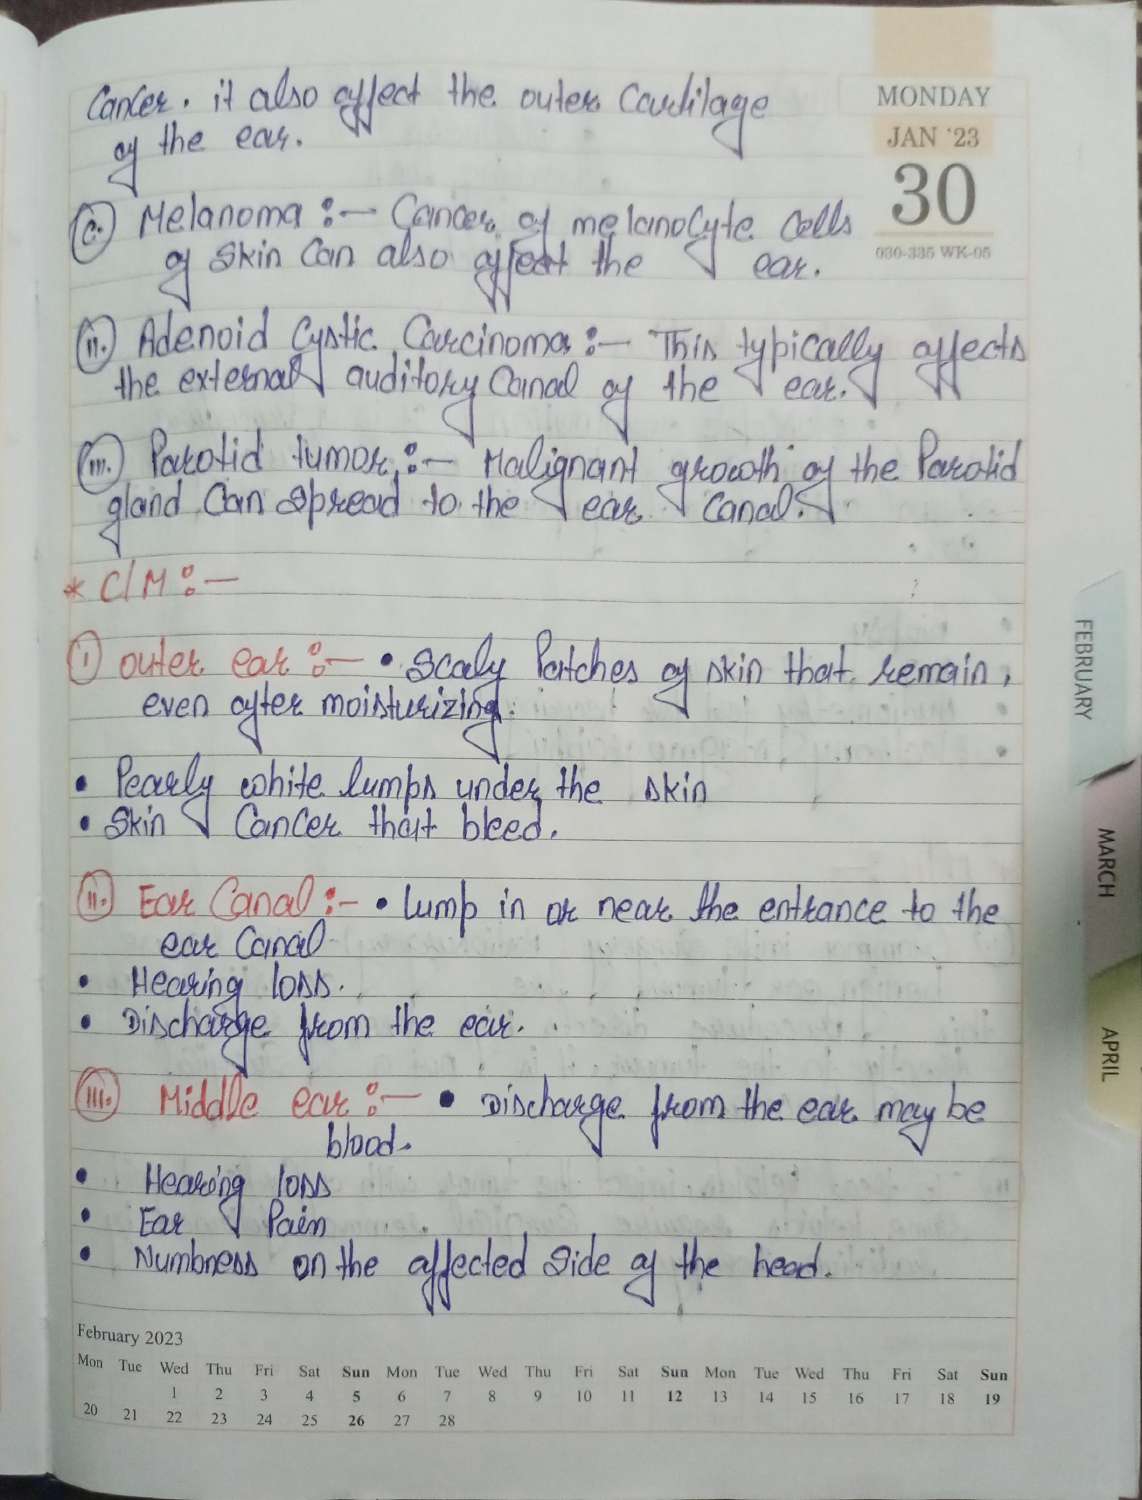 Cancer. it also affect the outer Cartilage
of the ear.
MONDAY
JAN '23
30
030-335 WK-05
C. Melanoma :- Cancer of melanocyte Cells
of Skin Can also affect the ear.
ii. Adenoid Cystic Carcinoma :- This typically affects
the external auditory Canal of the ear.
iii. Parotid tumor :- Malignant growth of the Parotid
gland Can spread to the ear Canal.
* C/M :-
i outer ear :- • Scaly Patches of skin that remain,
even after moisturizing.
• Pearly white lumps under the skin
• Skin Cancer that bleed.
ii. Ear Canal :- • lump in or near the entrance to the
ear Canal
• Hearing loss.
• Discharge from the ear.
iii. Middle ear :- • Discharge from the ear may be
blood.
• Hearing loss
• Ear Pain
• Numbness on the affected side of the head.
FEBRUARY
MARCH
APRIL
February 2023
Mon Tue Wed Thu Fri Sat Sun Mon Tue Wed Thu Fri Sat Sun Mon Tue Wed Thu Fri Sat Sun
1 2 3 4 5 6 7 8 9 10 11 12 13 14 15 16 17 18 19
20 21 22 23 24 25 26 27 28